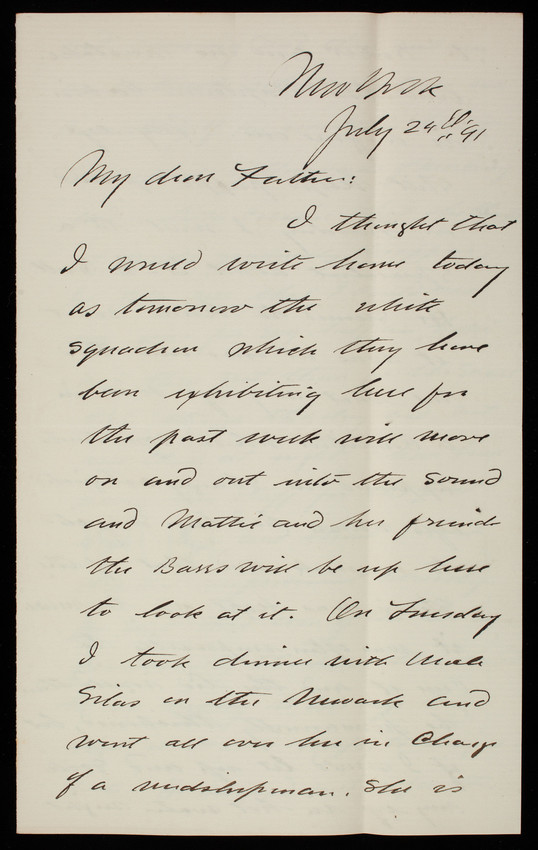 New York
July 24th 91
My dear Father:
I thought that
I would write home today
as tomorrow the white
squadron which they have
been exhibiting here for
the past week will move
on and out into the Sound
and Mattie and her friends
the Basss will be up here
to look at it. On Tuesday
I took dinner with Uncle
Silas on the Newark and
went all over her in charge
of a midshipman. She is